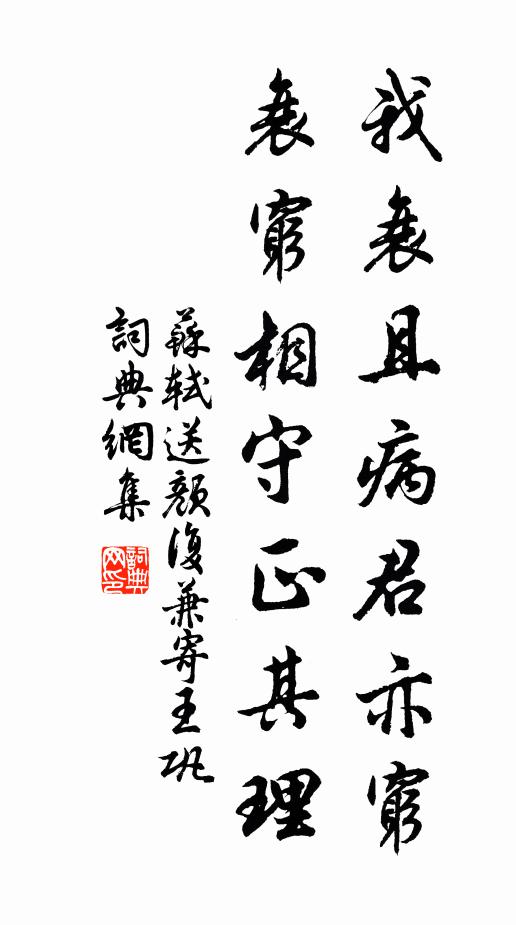 我衰且病君亦窮
衰窮相守正其理
蘇軾送顏復兼寄王巩
詞典網集
詞典網印